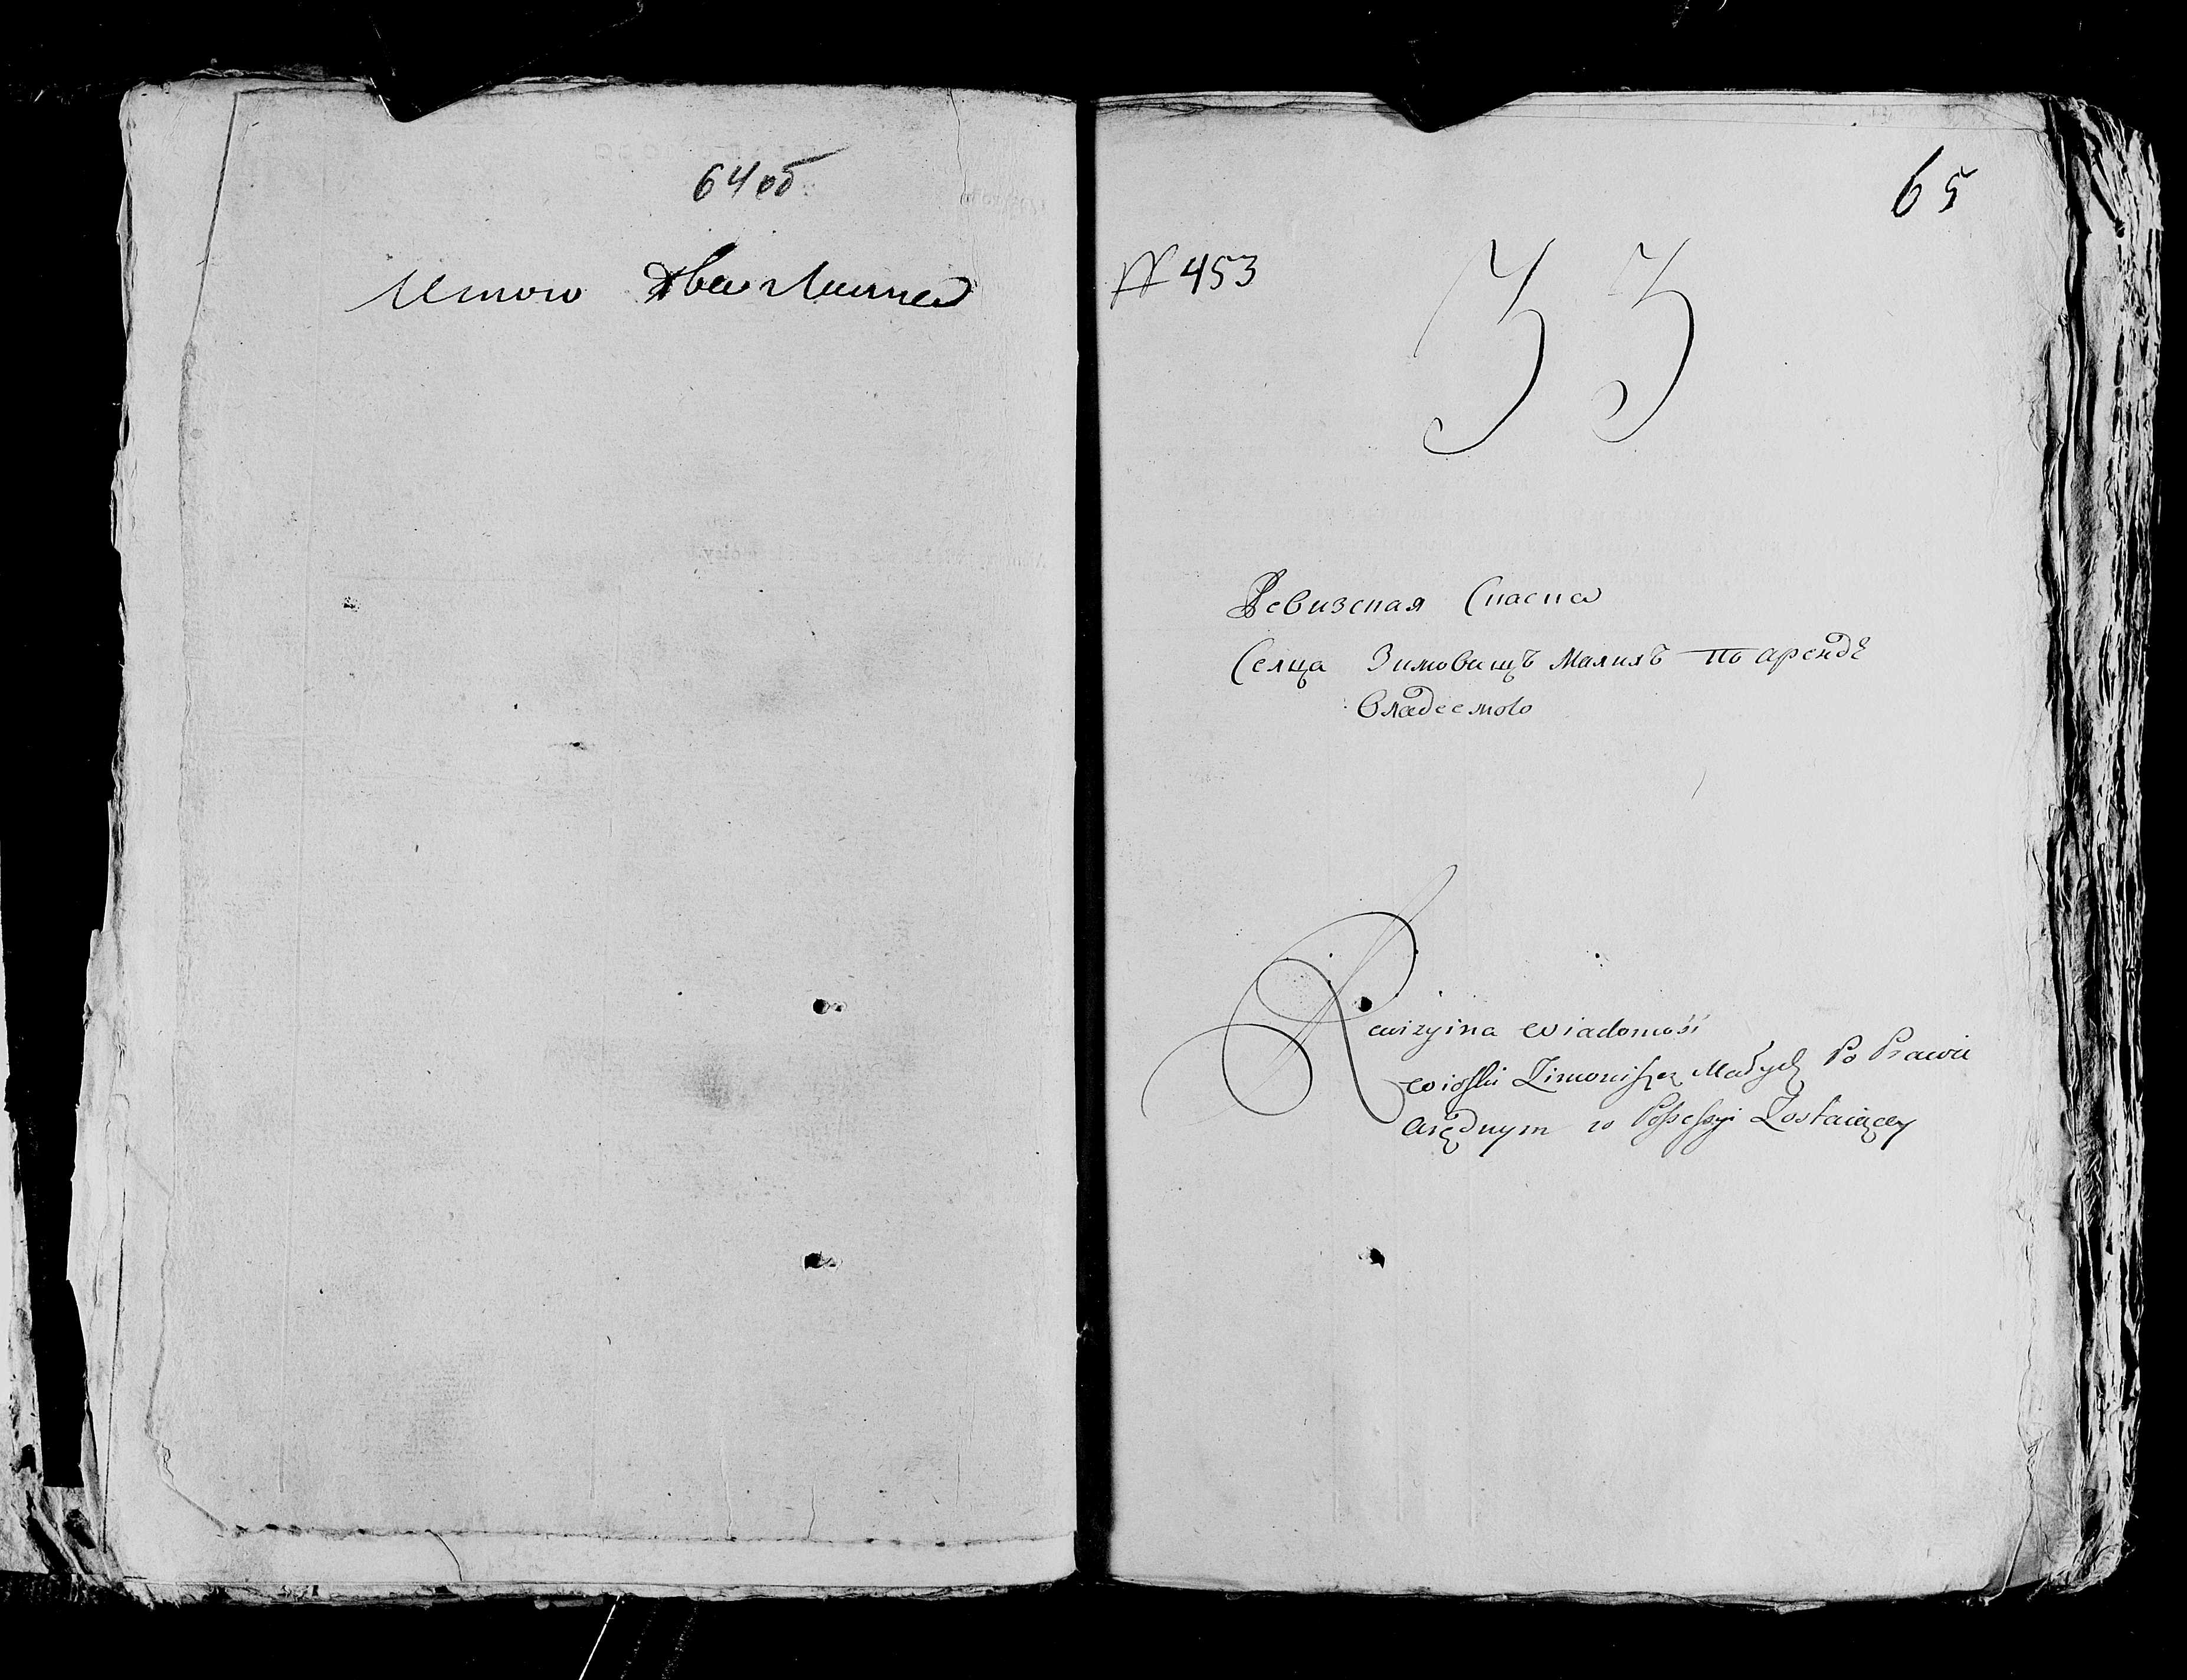 64об
Итого два листа
65
№ 453
33
Ревизская Сказка
Селца Зимовищъ Малихъ по арендѣ
владеемого
Rewizyina wiadomość
wioski Zimowiszcz Małych Po Prawie
arędnym w Possessyi Zostaiącey